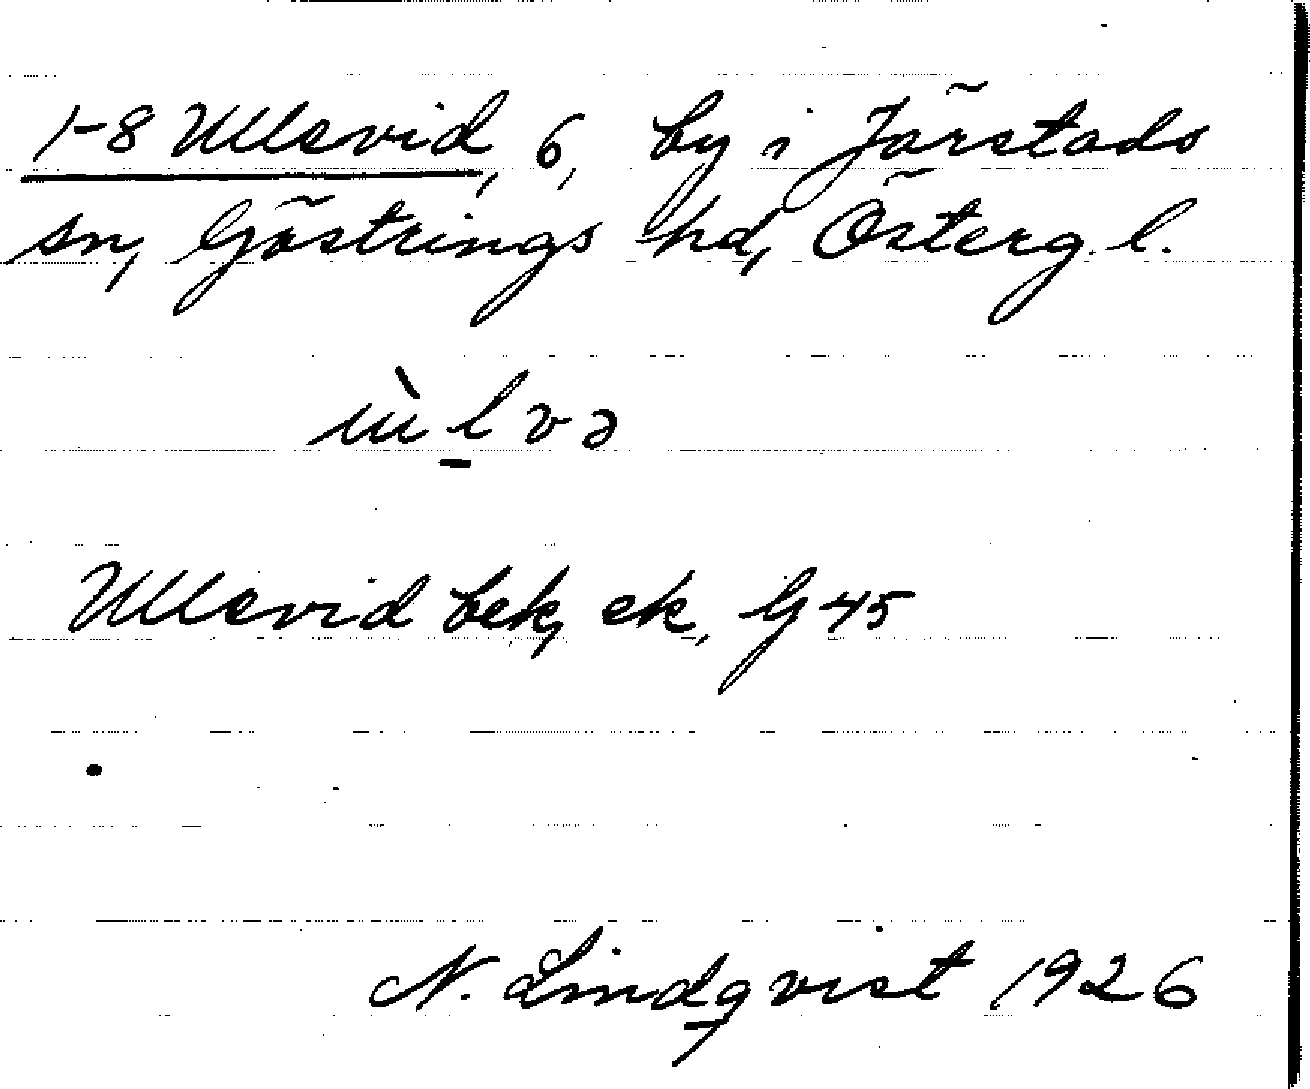 1-8 Ullevid, 6, by i Järstads
sn, Göstrings hd, Österg. l.
ùlvə
Ullevid bek, ek, G 45
N. Lindqvist 1926